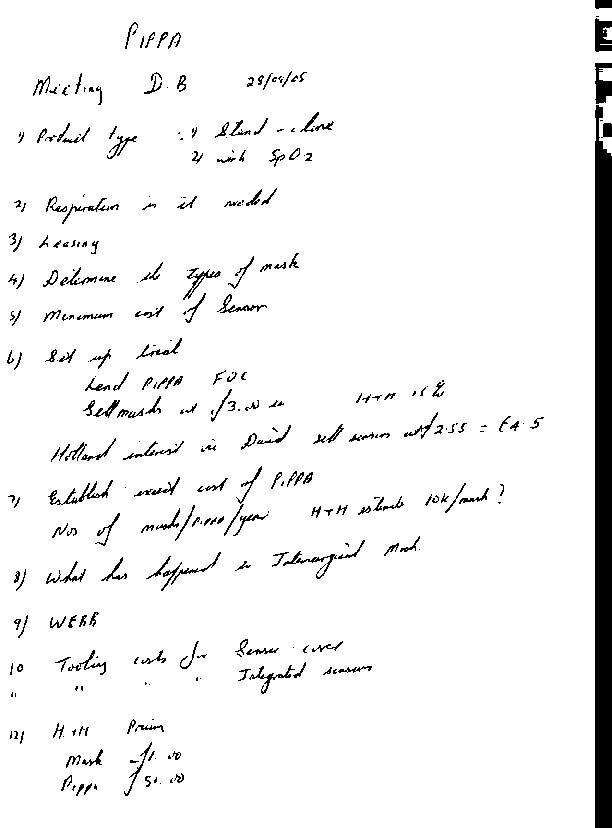 PIPPA
Meeting D.B 28/04/05
1) Product type :- 1) Stand-alone
2) with SpO2
2) Respiration is it needed
3) Leasing
4) Determine the types of mask
5) Minimum cost of Sensor
6) Set up trial
Lend PIPPA FOC
Sell masks at £3.00 H+H 15%
Holland interest in David sell sensors at £2.55 = €4.5
7) Establish exact cost of PIPPA
Nos of masks/PIPPA/year H+H estimate 10k/mask?
8) What has happened to Intersurgical Mask.
9) WEBB
10 Tooling costs for Sensor cover
" " " " Integrated sensors
12) H+H
Mask £1.00
Pippa £50.00